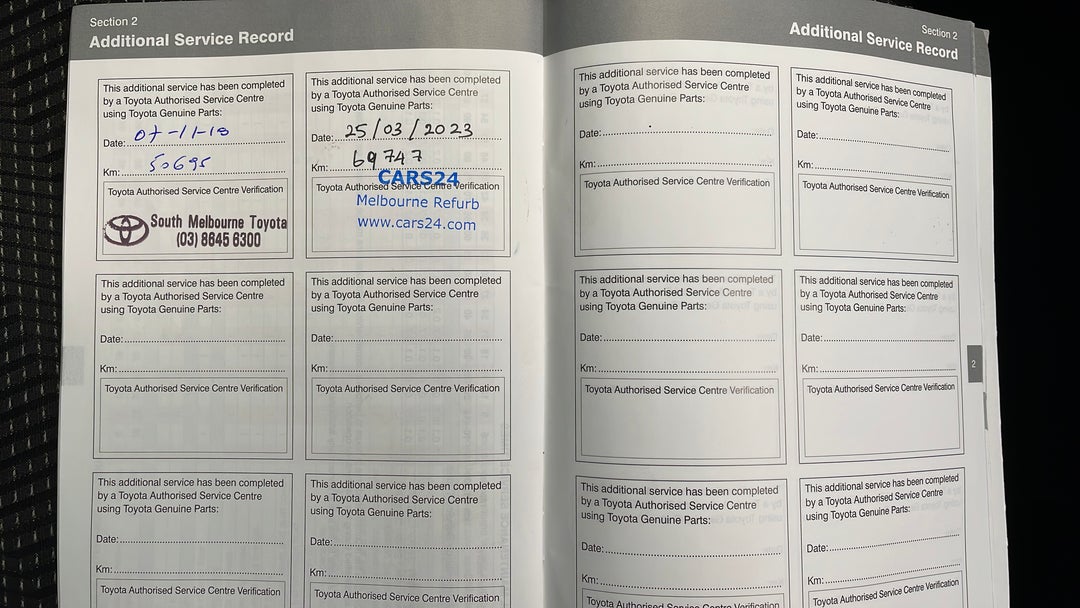 Section 2
Additional Service Record
This additional service has been completed
by a Toyota Authorised Service Centre
using Toyota Genuine Parts:
Date: 07-11-18
Km: 50695
Toyota Authorised Service Centre Verification
South Melbourne Toyota
(03) 8645 6300
This additional service has been completed
by a Toyota Authorised Service Centre
using Toyota Genuine Parts:
Date: 25/03/2023
Km: 69747
CARS24
Toyota Authorised Service Centre Verification
Melbourne Refurb
www.cars24.com
This additional service has been completed
by a Toyota Authorised Service Centre
using Toyota Genuine Parts:
Date:
Km:
Toyota Authorised Service Centre Verification
This additional service has been completed
by a Toyota Authorised Service Centre
using Toyota Genuine Parts:
Date:
Km:
Toyota Authorised Service Centre Verification
This additional service has been completed
by a Toyota Authorised Service Centre
using Toyota Genuine Parts:
Date:
Km:
Toyota Authorised Service Centre Verification
This additional service has been completed
by a Toyota Authorised Service Centre
using Toyota Genuine Parts:
Date:
Km:
Toyota Authorised Service Centre Verification
Section 2
Additional Service Record
This additional service has been completed
by a Toyota Authorised Service Centre
using Toyota Genuine Parts:
Date:
Km:
Toyota Authorised Service Centre Verification
This additional service has been completed
by a Toyota Authorised Service Centre
using Toyota Genuine Parts:
Date:
Km:
Toyota Authorised Service Centre Verification
This additional service has been completed
by a Toyota Authorised Service Centre
using Toyota Genuine Parts:
Date:
Km:
Toyota Authorised Service Centre Verification
This additional service has been completed
by a Toyota Authorised Service Centre
using Toyota Genuine Parts:
Date:
Km:
Toyota Authorised Service Centre Verification
2
This additional service has been completed
by a Toyota Authorised Service Centre
using Toyota Genuine Parts:
Date:
Km:
Toyota Authorised Service Centre Verification
This additional service has been completed
by a Toyota Authorised Service Centre
using Toyota Genuine Parts:
Date:
Km:
Toyota Authorised Service Centre Verification